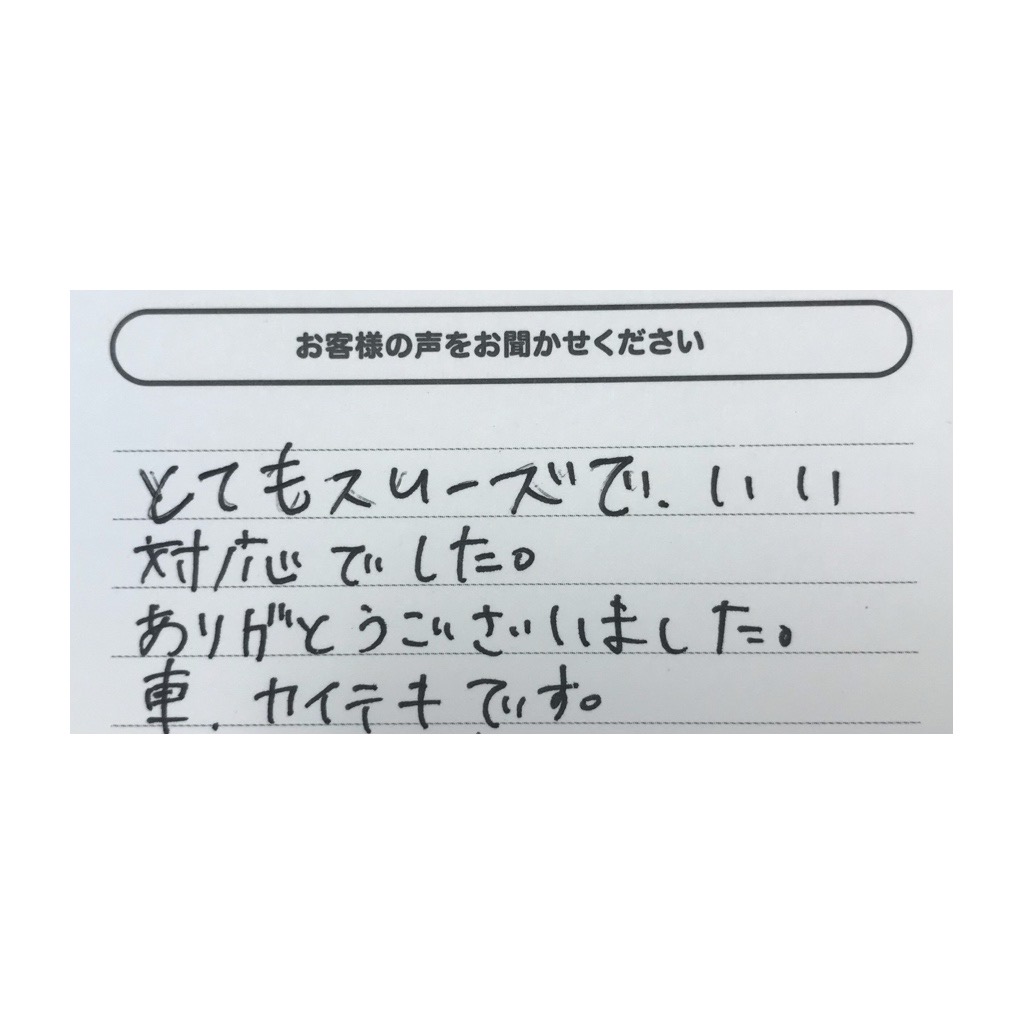 お客様の声をお聞かせください
とてもスムーズで、いい
対応でした。
ありがとうございました。
車、カイテキです。